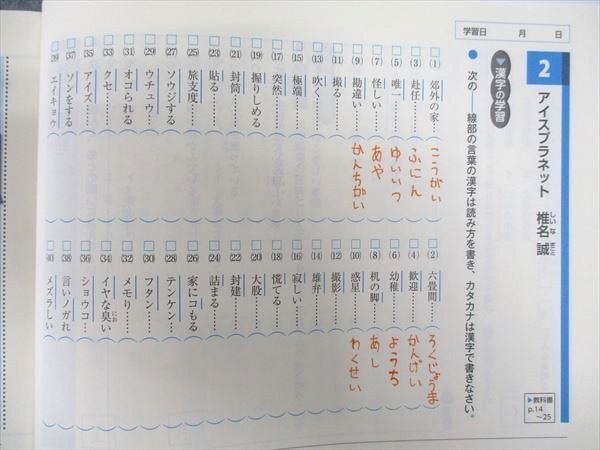 学習日　　月　　日
2 アイスプラネット　椎名 誠
しいな まこと
▼漢字の学習
▶教科書 p.14～25
● 次の──線部の言葉の漢字は読み方を書き、カタカナは漢字で書きなさい。
□(1) 郊外の家…（こうがい）
□(2) 六畳間……（ろくじょうま）
□(3) 赴任………（ふにん）
□(4) 歓迎………（かんげい）
□(5) 唯一………（ゆいいつ）
□(6) 幼稚………（ようち）
□(7) 怪しい……（あや）
□(8) 机の脚……（あし）
□(9) 勘違い……（かんちがい）
□(10) 惑星………（わくせい）
□(11) 撮る………（　）
□(12) 撮影………（　）
□(13) 吹く………（　）
□(14) 雄弁………（　）
□(15) 極端………（　）
□(16) 寂しい……（　）
□(17) 突然………（　）
□(18) 慌てる……（　）
□(19) 握りしめる（　）
□(20) 大股………（　）
□(21) 封筒………（　）
□(22) 封建………（　）
□(23) 貼る………（　）
□(24) 詰まる……（　）
□(25) 旅支度……（　）
□(26) 家にコもる（　）
□(27) ソウジする（　）
□(28) テンケン…（　）
□(29) ウチュウ…（　）
□(30) フタン……（　）
□(31) オコられる（　）
□(32) メモり……（　）
□(33) クセ………（　）
□(34) イヤな臭い（　）
にお
□(35) アイズ……（　）
□(36) ショウコ…（　）
□(37) ソンをする（　）
□(38) 言いノガれ（　）
□(39) エイキョウ
□(40) メズラしい